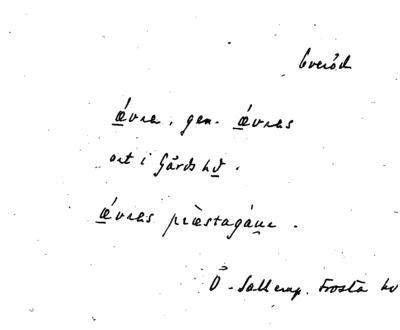 Everöd
ǽvra, gen. ǽvras
ort i Gärds hd.
ǽvras præstagánn.
Ö. Sallerup. Frosta hd